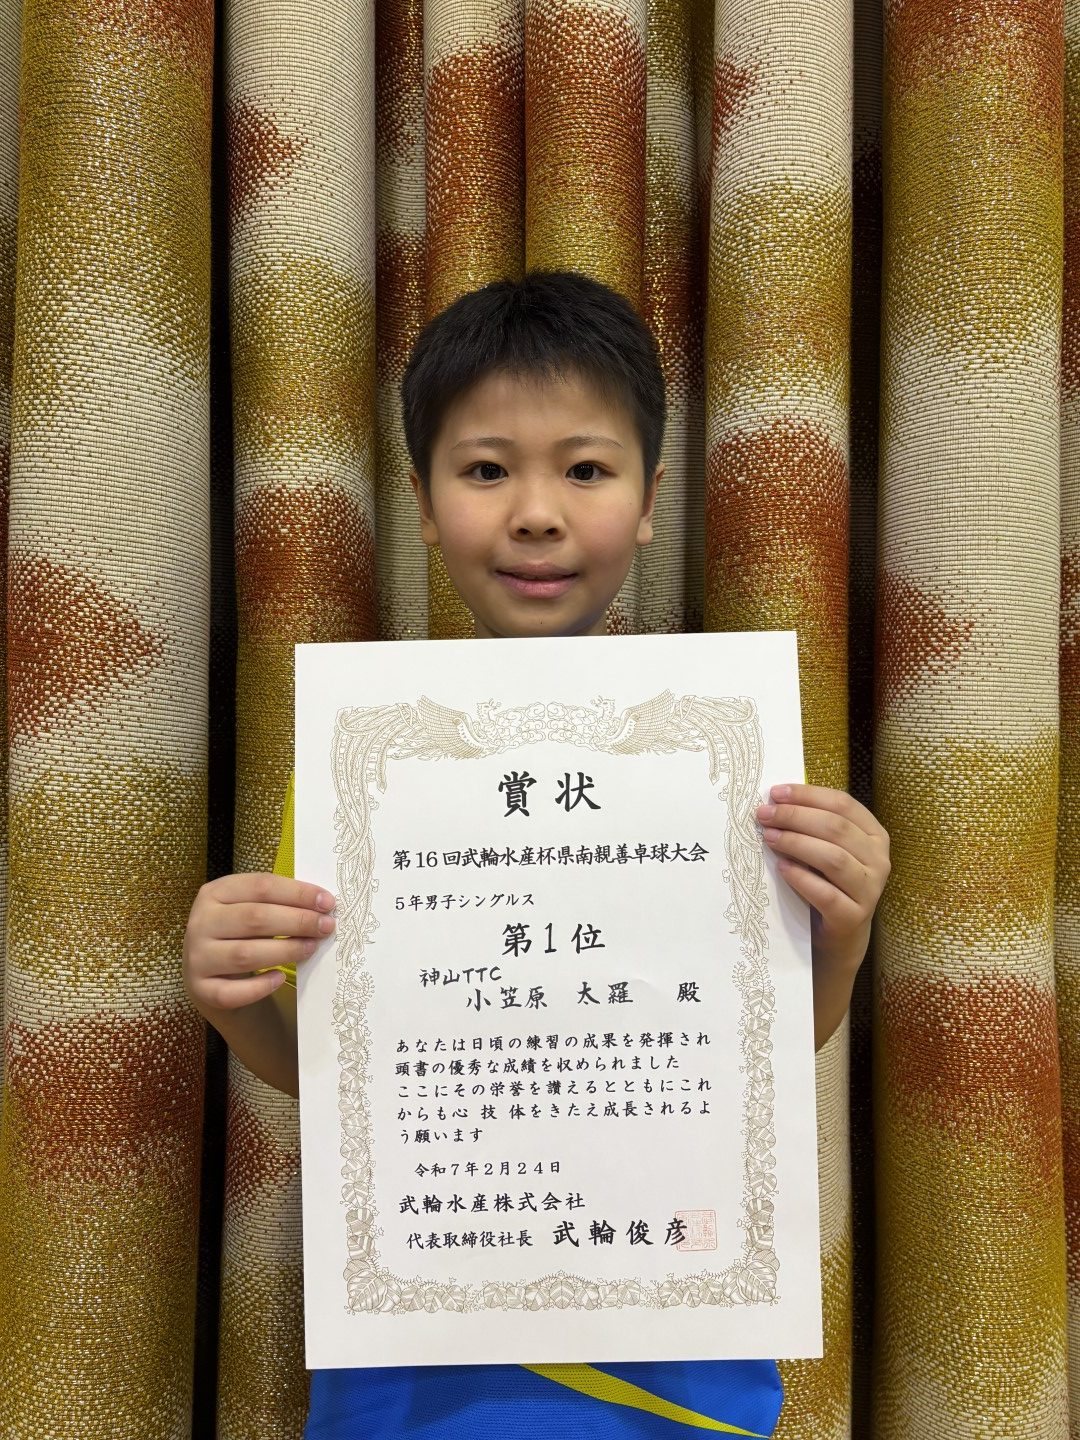 賞状
第16回武輪水産杯県南親善卓球大会
5年男子シングルス
第1位
神山TTC
小笠原 大羅 殿
あなたは日頃の練習の成果を発揮され
頭書の優秀な成績を収められました
ここにその栄誉を讃えるとともにこれ
からも心 技 体をきたえ成長されるよ
う願います
令和7年2月24日
武輪水産株式会社
代表取締役社長 武輪俊彦